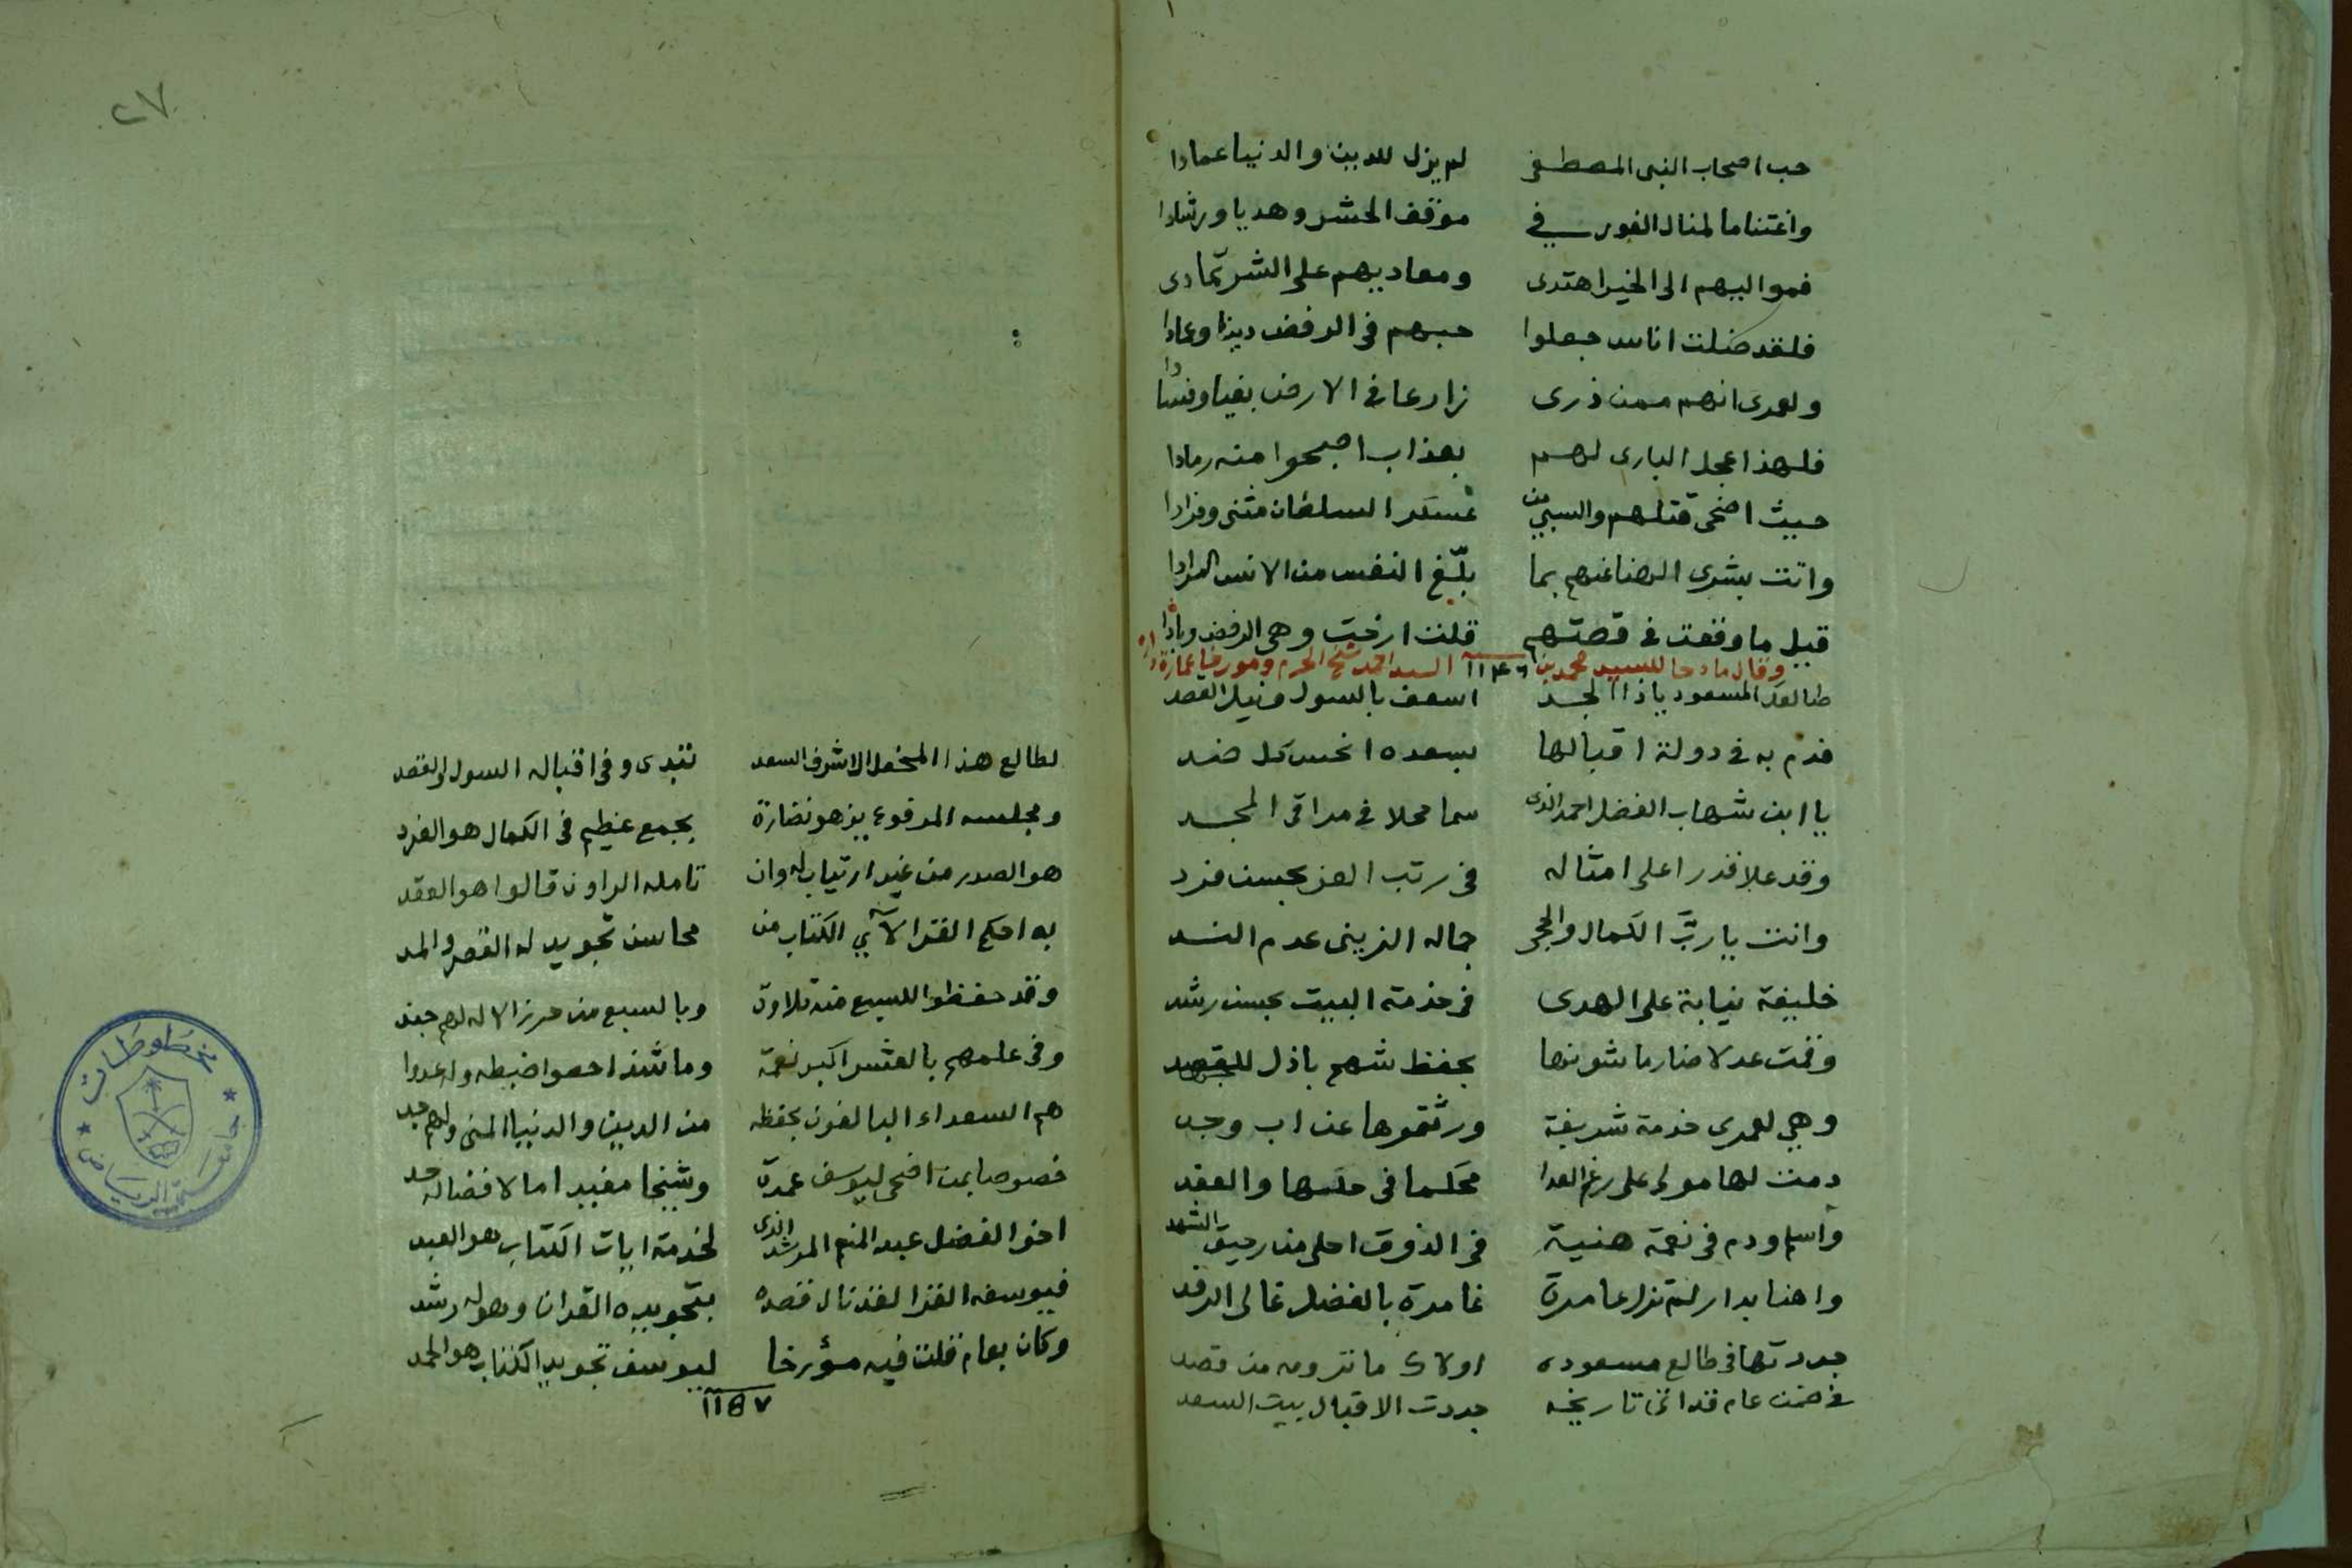 حب اصحاب النبي المصطفى لم يزل للدين والدنيا عمادا
واغتناما لمنال الفوز في موقف الحشر وهديا ورشادا
فمواليهم الى الخير اهتدى ومعاديهم على الشر تمادى
فلقد ضلت اناس جعلوا حبهم في الرفض دينا وعمادا
ولعمرى انهم ممن ذرى زارعا في الارض بغيا وفسادا
فلهذا عجل البارى لهم بعذاب اصبحوا منه رمادا
حيث اضحى قتلهم والسبي من عسكر السلطان مثنى وفرادا
واتت بشرى الهنا عنهم بما بلّغ النفس من الانس المرادا
قبل ما وقعت في قصتهم قلت ارخت وهى الرفض وبادا
وقال مادحا للسيد محمد بن السيد احمد شيخ الحرم ومورخا عمارة داره
١١٤٦
طالعك المسعود ياذا المجد اسعف بالسول ونيل القصد
فدم به في دولة اقبالها بسعده انحس كل ضد
يا ابن شهاب الفضل احمد الذى سما محلا في مراقى المجد
وقد علا قدرا على امثاله في رتب العز بحسن فرد
وانت يا ربّ الكمال والحجى جماله الزينى عدم الند
خليفة نيابة على الهدى في خدمة البيت بحسن رشد
وقمت عدلا ضارما شونها بحفظ شهم باذل للجهد
وهي لعمرى خدمة شريفة ورثتموها عن اب وجد
دمت لها مولى على رغم العدا محكما في حلها والعقد
واسلم ودم في نعمة هنية في الذوق احلى من رحيق الشهد
واهنا بدار لم تزل عامرة غامرة بالفضل غالى الرفد
جددتها في طالع مسعوده اولاك ما ترومه من قصد
في ضمن عام قد اتى تاريخه جددت الاقبال بيت السعد
٢٧
لطالع هذا المحفل الاشرف السعد تبدى وفي اقباله السول والقصد
ومجلسه المرفوع يزهو نضارة بجمع عظيم في الكمال هو الفرد
هو الصدر من غير ارتياب له وان تامله الراون قالوا هو العقد
به احكم القرا لآي الكتاب من محاسن تجويد له القصر والمد
وقد حفظوا للسبع منه تلاوة وبالسبع من حرز الاله لهم جند
وفي علمهم بالعشر اكبر نعمة وما شذ احصوا ضبطه وله عدوا
هم السعداء البالغون بحفظه من الدين والدنيا المنى ولهم جد
خصوصا بمن اضحى ليوسف عمدة وشيخا مفيدا ما لافضاله حد
اخو الفضل عبد المنعم المرشد الذى لخدمة ايات الكتاب هو العبد
فيوسف القرا لقد نال قصده بتجويده القران وهو له رشد
وكان بعام قلت فيه مؤرخا ليوسف تجويد الكتاب هو الحمد
١١٥٧
مخطوطات
جامعة الرياض